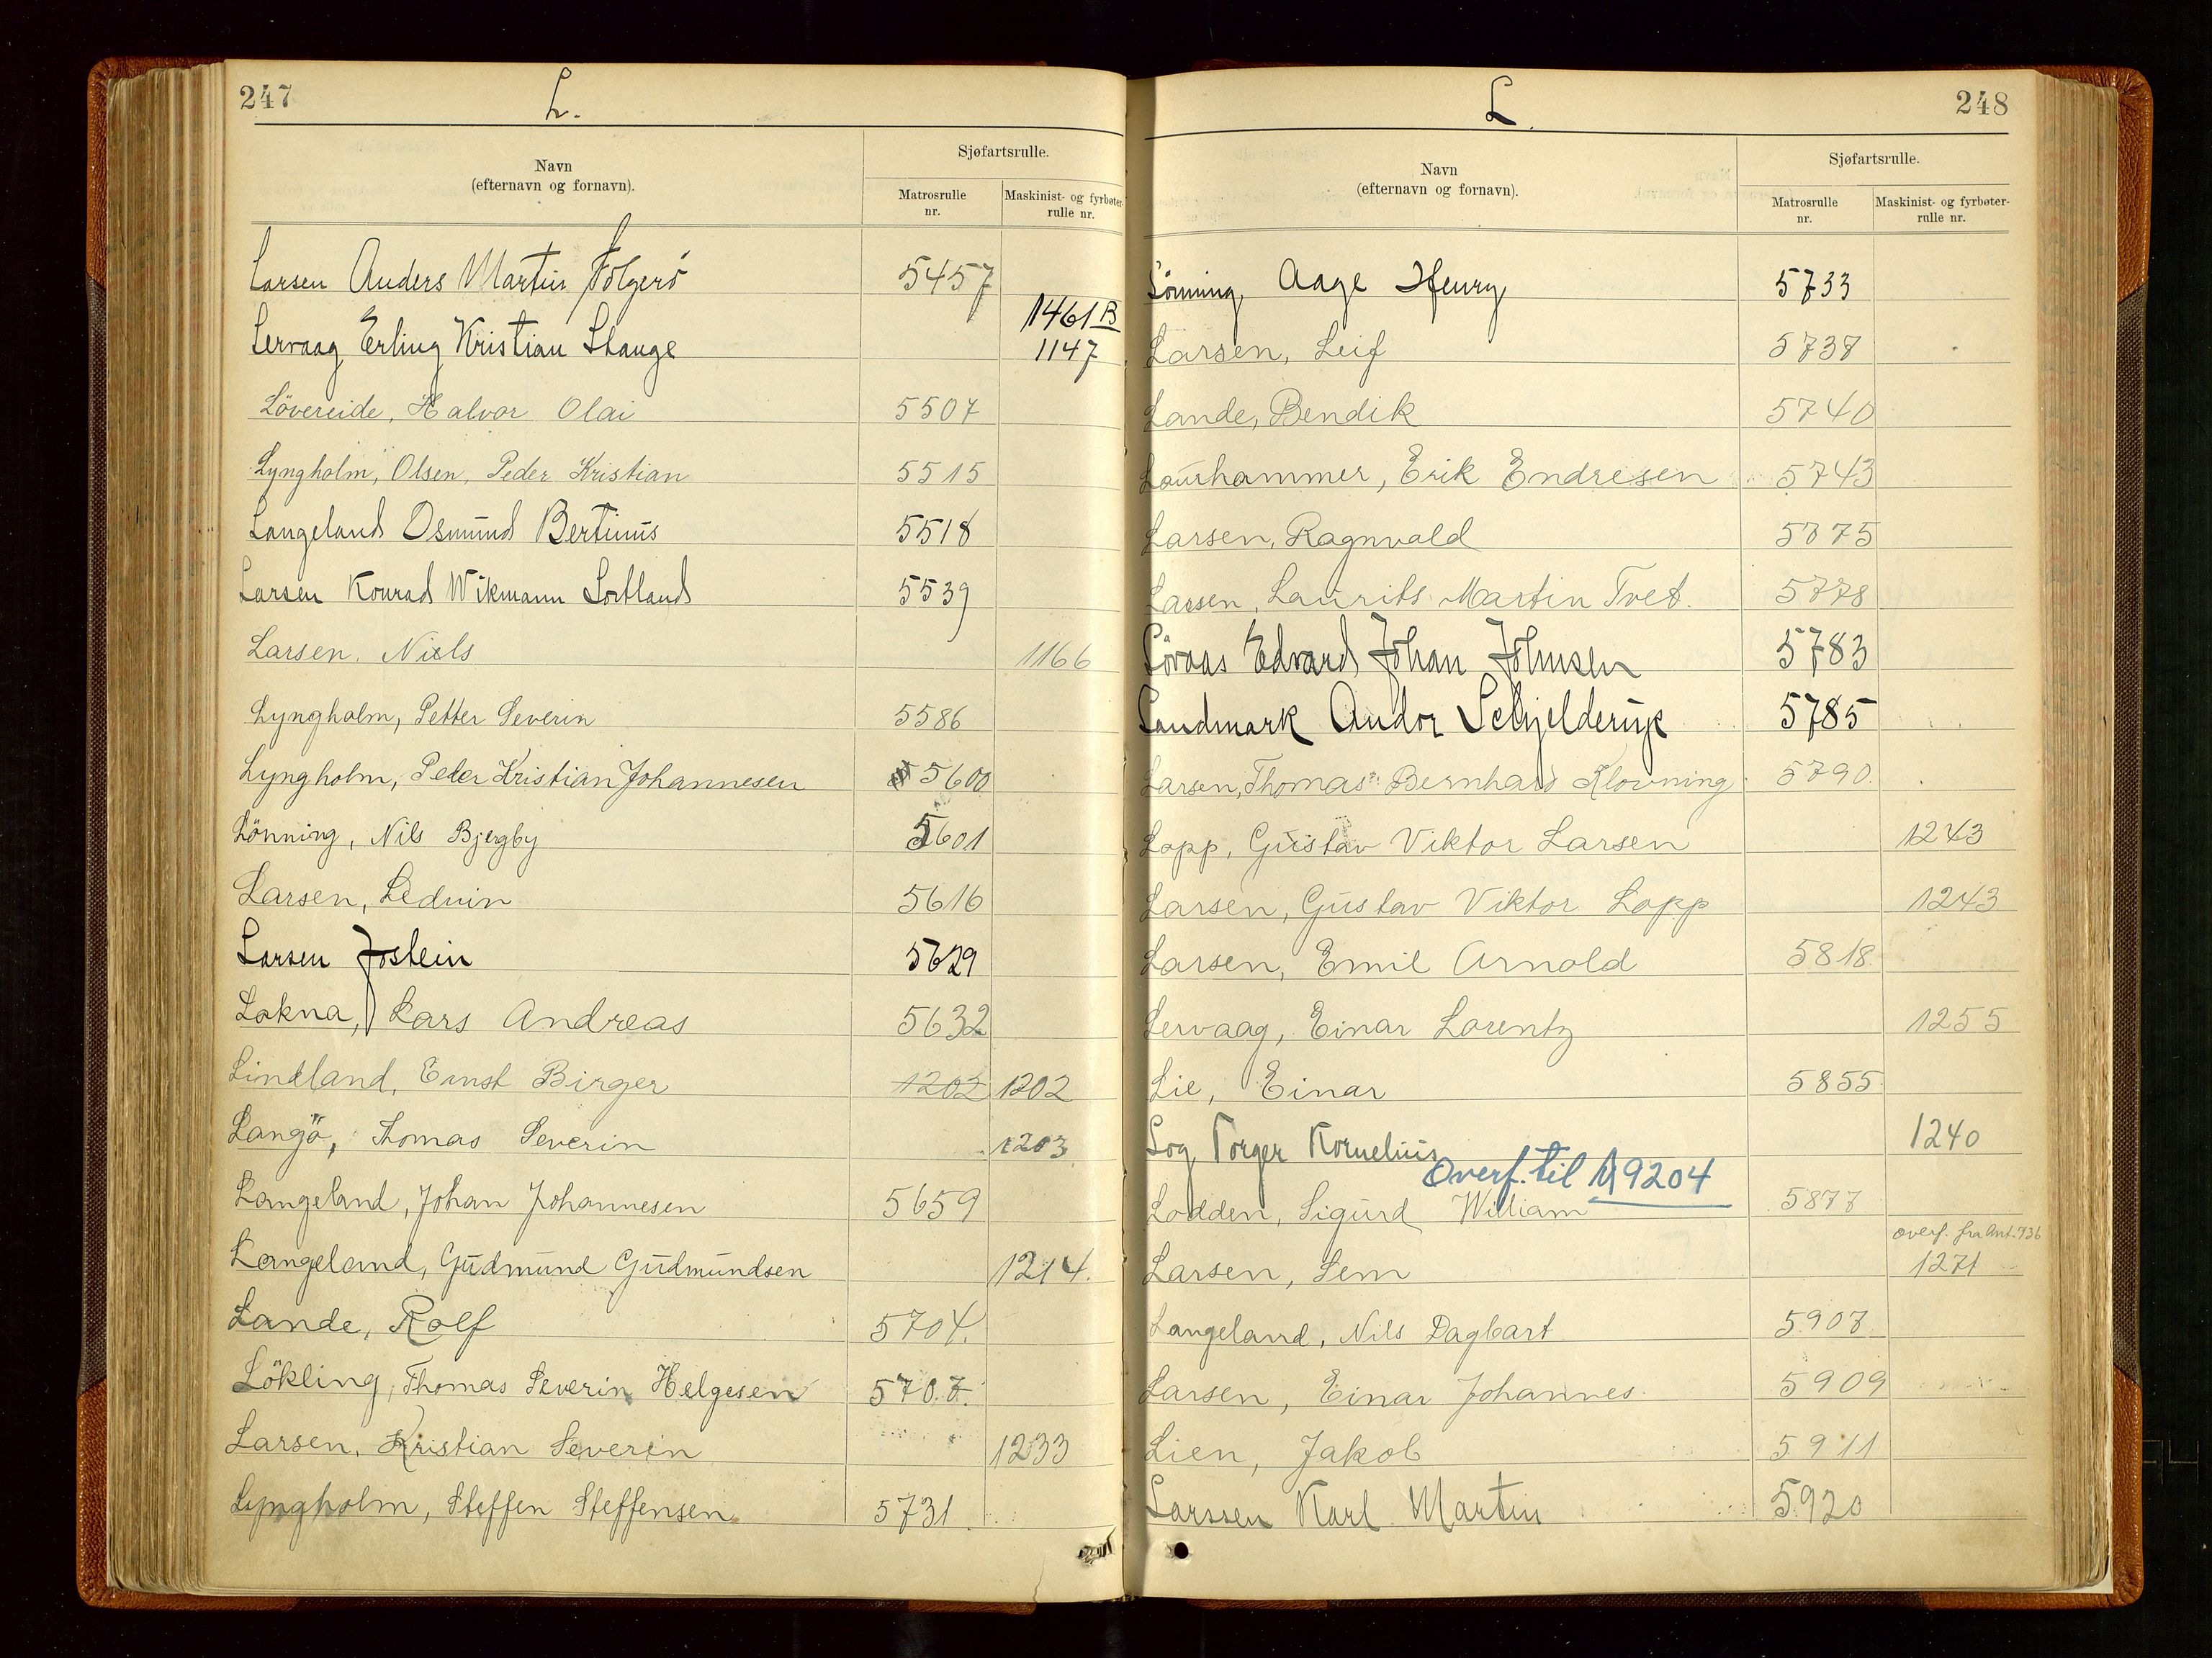 247
L.
Navn
(efternavn og fornavn).
Sjøfartsrulle.
Matrosrulle
nr.
Maskinist- og fyrbøter-
rulle nr.
Larsen Anders Martin Følgerö 5457
1461 B
Lervaag Erling Kristian Stange 1147
Lövereide, Halvor Olai 5507
Lyngholm, Olsen, Peder Kristian 5515
Langeland Osmund Bertinus 5518
Larsen Konrad Wikmann Lortland 5539
Larsen, Niels 1166
Lyngholm, Petter Severin 5586
Lyngholm, Peder Kristian Johannesen 5600
Lönning, Nils Bjergby 5601
Larsen, Leduin 5616
Larsen Jostein 5629
Lokna, Lars Andreas 5632
Lindland, Ernst Birger 1202 1202
Langö, Thomas Severin 1203
Langeland, Johan Johannesen 5659
Langeland, Gudmund Gudmundsen 1214.
Lande, Rolf 5704.
Lökling, Thomas Severin Helgesen 5707.
Larsen, Kristian Severin 1233
Lyngholm, Steffen Steffensen 5731
248
L.
Navn
(efternavn og fornavn).
Sjøfartsrulle.
Matrosrulle
nr.
Maskinist- og fyrbøter-
rulle nr.
Lönning, Aage Henry 5733
Larsen, Leif 5737
Lande, Bendik 5740
Laurhammer, Erik Endresen 5743
Larsen, Ragnvald 5775
Larsen, Laurits Martin Tvet. 5778
Lövaas Edvard Johan Johnsen 5783
Landmark Andor Schjelderup 5785
Larsen, Thomas Bernhard Klovning 5790.
Lopp, Gustav Viktor Larsen 1243
Larsen, Gustav Viktor Lopp 1243
Larsen, Emil Arnold 5818.
Lervaag, Einar Lorentz 1255
Lie, Einar 5855
Log Torger Kornelius 1240
Overf. til M 9204
Lodden, Sigurd William 5877
overf. fra Ant. 736
Larsen, Sem 1271
Langeland, Nils Dagbart 5907
Larsen, Einar Johannes 5909
Lien, Jakob 5911
Larssen Karl Martin 5920